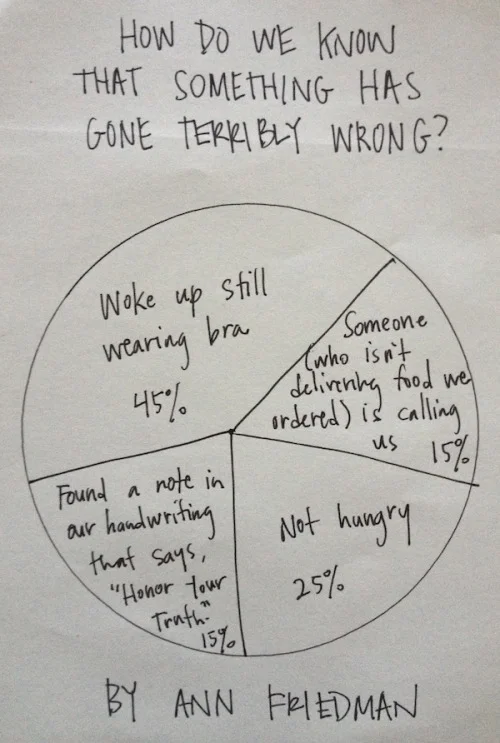 HOW DO WE KNOW
THAT SOMETHING HAS
GONE TERRIBLY WRONG?
Woke up still
wearing bra
45%
Someone
(who isn't
delivering food we
ordered) is calling
us 15%
Found a note in
our handwriting
that says,
"Honor Your
Truth."
15%
Not hungry
25%
BY ANN FRIEDMAN